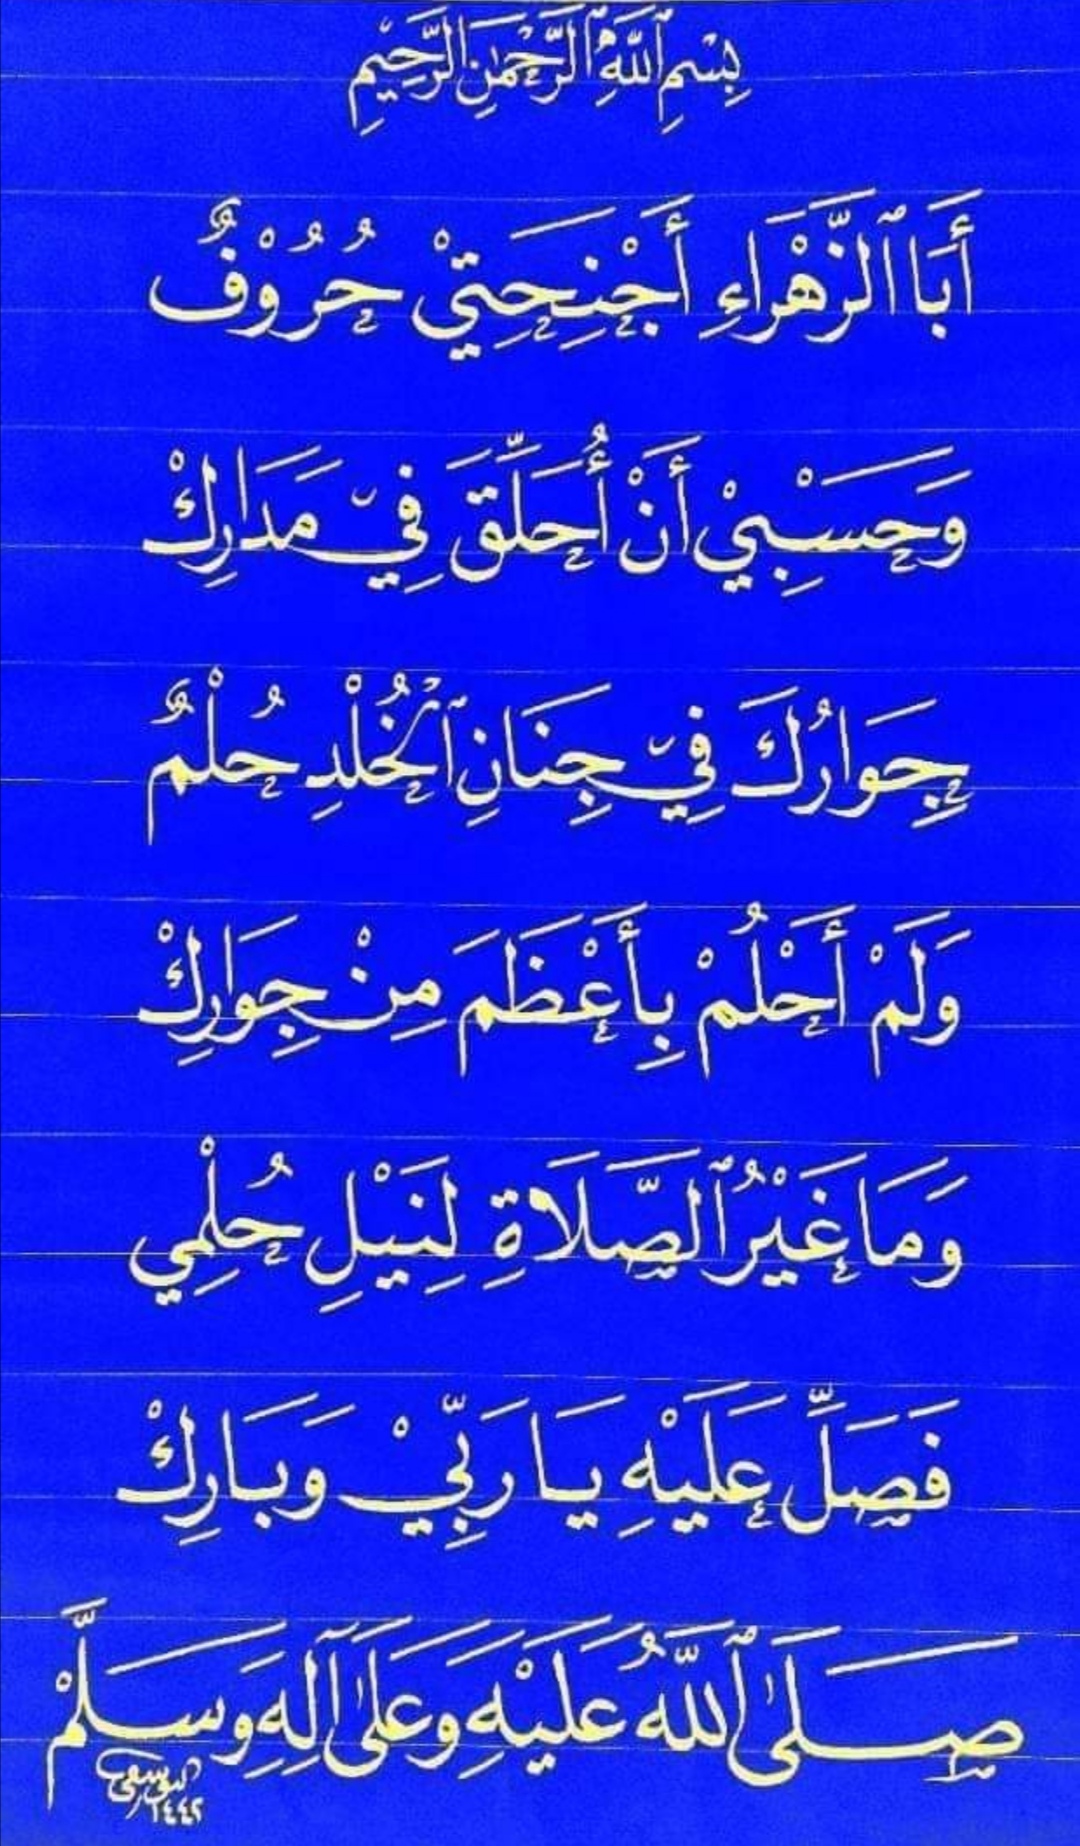 بِسْمِ ٱللَّهِ ٱلرَّحْمَٰنِ ٱلرَّحِيمِ
أَبَا ٱلزَّهْرَاءِ أَجْنِحَتِيْ حُرُوْفٌ
وَحَسْبِيْ أَنْ أُحَلِّقَ فِيْ مَدَارِكْ
جِوَارُكَ فِيْ جِنَانِ ٱلْخُلْدِ حُلْمٌ
وَلَمْ أَحْلُمْ بِأَعْظَمَ مِنْ جِوَارِكْ
وَمَا غَيْرُ ٱلصَّلَاةِ لِنَيْلِ حُلْمِي
فَصَلِّ عَلَيْهِ يَا رَبِّيْ وَبَارِكْ
صَلَّىٰ ٱللَّهُ عَلَيْهِ وَعَلَىٰ آلِهِ وَسَلَّمْ
١٤٤٢